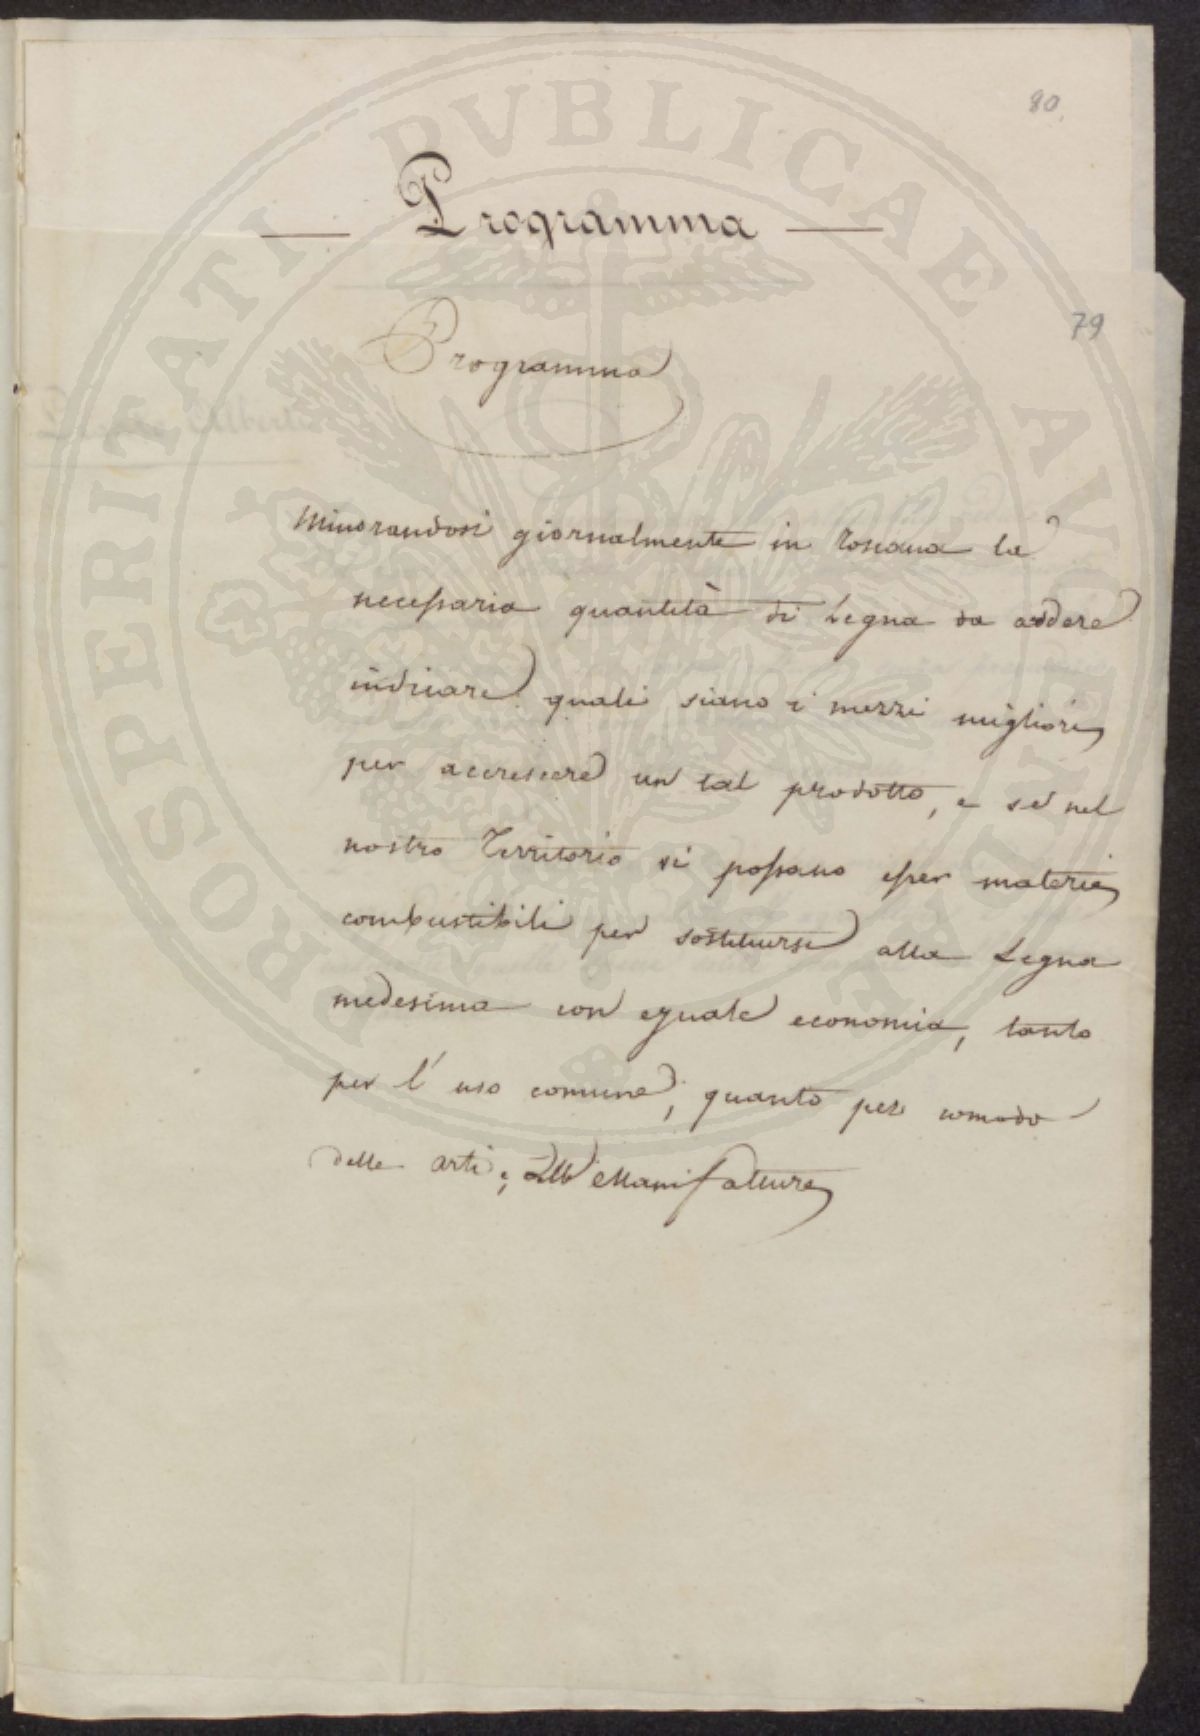 80
Programma
79
Programma
Minorandosi giornalmente in Toscana la
necessaria quantità di Legna da ardere
indicare quali siano i mezzi migliori
per accrescere un tal prodotto, e se nel
nostro Territorio vi possano esser materie
combustibili per sostituirsi alla Legna
medesima con eguale economia, tanto
per l' uso comune, quanto per comodo
delle arti, e delle Manifatture
PROSPERITATI PVBLICAE AVGENDAE